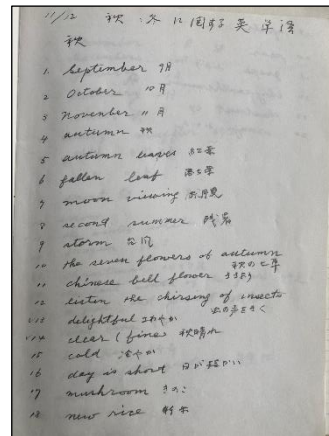 11/12 秋・冬に関する英単語
秋
1. September 9月
2 October 10月
3 November 11月
4 autumn 秋
5 autumn leaves 紅葉
6 fallen leaf 落葉
7 moon viewing お月見
8 second summer 残暑
9 storm 台風
10 the seven flowers of autumn
秋の七草
11 chinese bell flower ききょう
12 listen the chirsing of insects
虫の声をきく
13 delightful さわやか
14 clear (fine) 秋晴れ
15 cold 冷やか
16 day is short 日が短かい
17 mushroom きのこ
18 new rice 新米